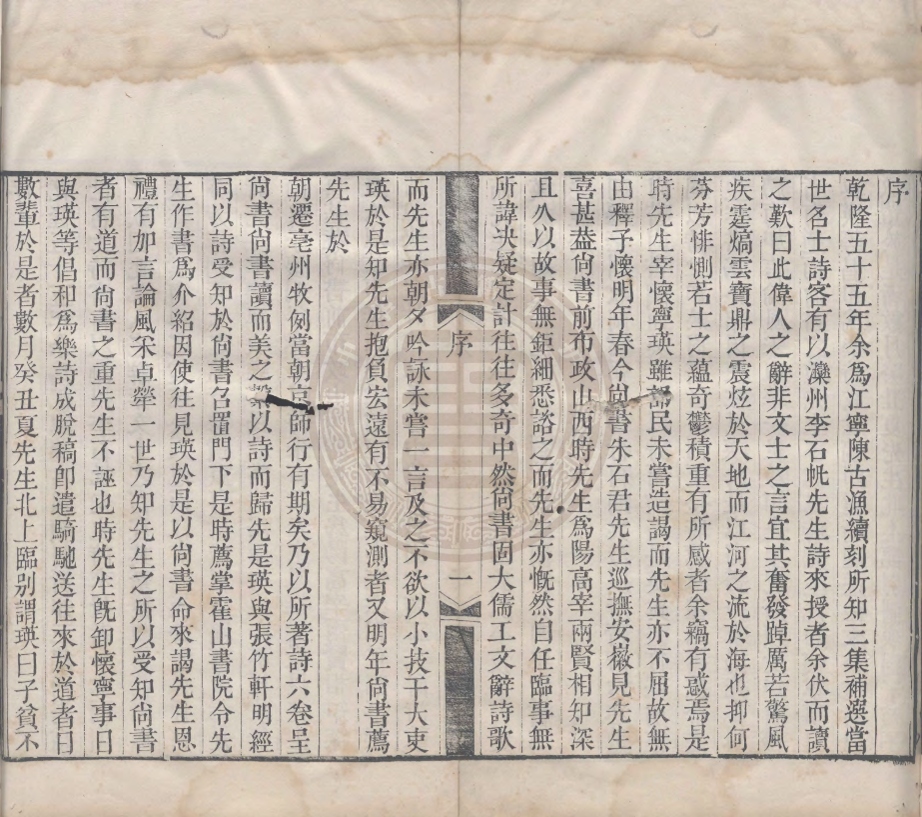 序
乾隆五十五年余爲江寧陳古漁續刻所知三集補選當
世名士詩客有以灤州李石帆先生詩來授者余伏而讀
之歎曰此偉人之辭非文士之言宜其奮發踔厲若驚風
疾霆熇雲寶鼎之震炫於天地而江河之流於海也抑何
芬芳悱惻若士之蘊奇鬱積重有所感者余竊有惑焉是
時先生宰懷寧瑛雖部民未嘗造謁而先生亦不屈故無
由釋予懷明年春今尙書朱石君先生巡撫安徽見先生
喜甚葢尙書前布政山西時先生爲陽高宰兩賢相知深
且久以故事無鉅細悉諮之而先生亦慨然自任臨事無
所諱决疑定計往往多奇中然尙書固大儒工文辭詩歌
序
一
而先生亦朝夕吟詠未嘗一言及之不欲以小技干大吏
瑛於是知先生抱負宏遠有不易窺測者又明年尙書薦
先生於
朝遷亳州牧例當朝京師行有期矣乃以所著詩六卷呈
尙書尙書讀而美之以詩而歸先是瑛與張竹軒明經
同以詩受知於尙書召置門下是時薦掌霍山書院令先
生作書爲介紹因使往見瑛於是以尙書命來謁先生恩
禮有加言論風采卓犖一世乃知先生之所以受知尙書
者有道而尙書之重先生不誣也時先生旣卸懷寧事日
與瑛等倡和爲樂詩成脫稿卽遣騎馳送往來於道者日
數輩於是者數月癸丑夏先生北上臨别謂瑛曰子貧不